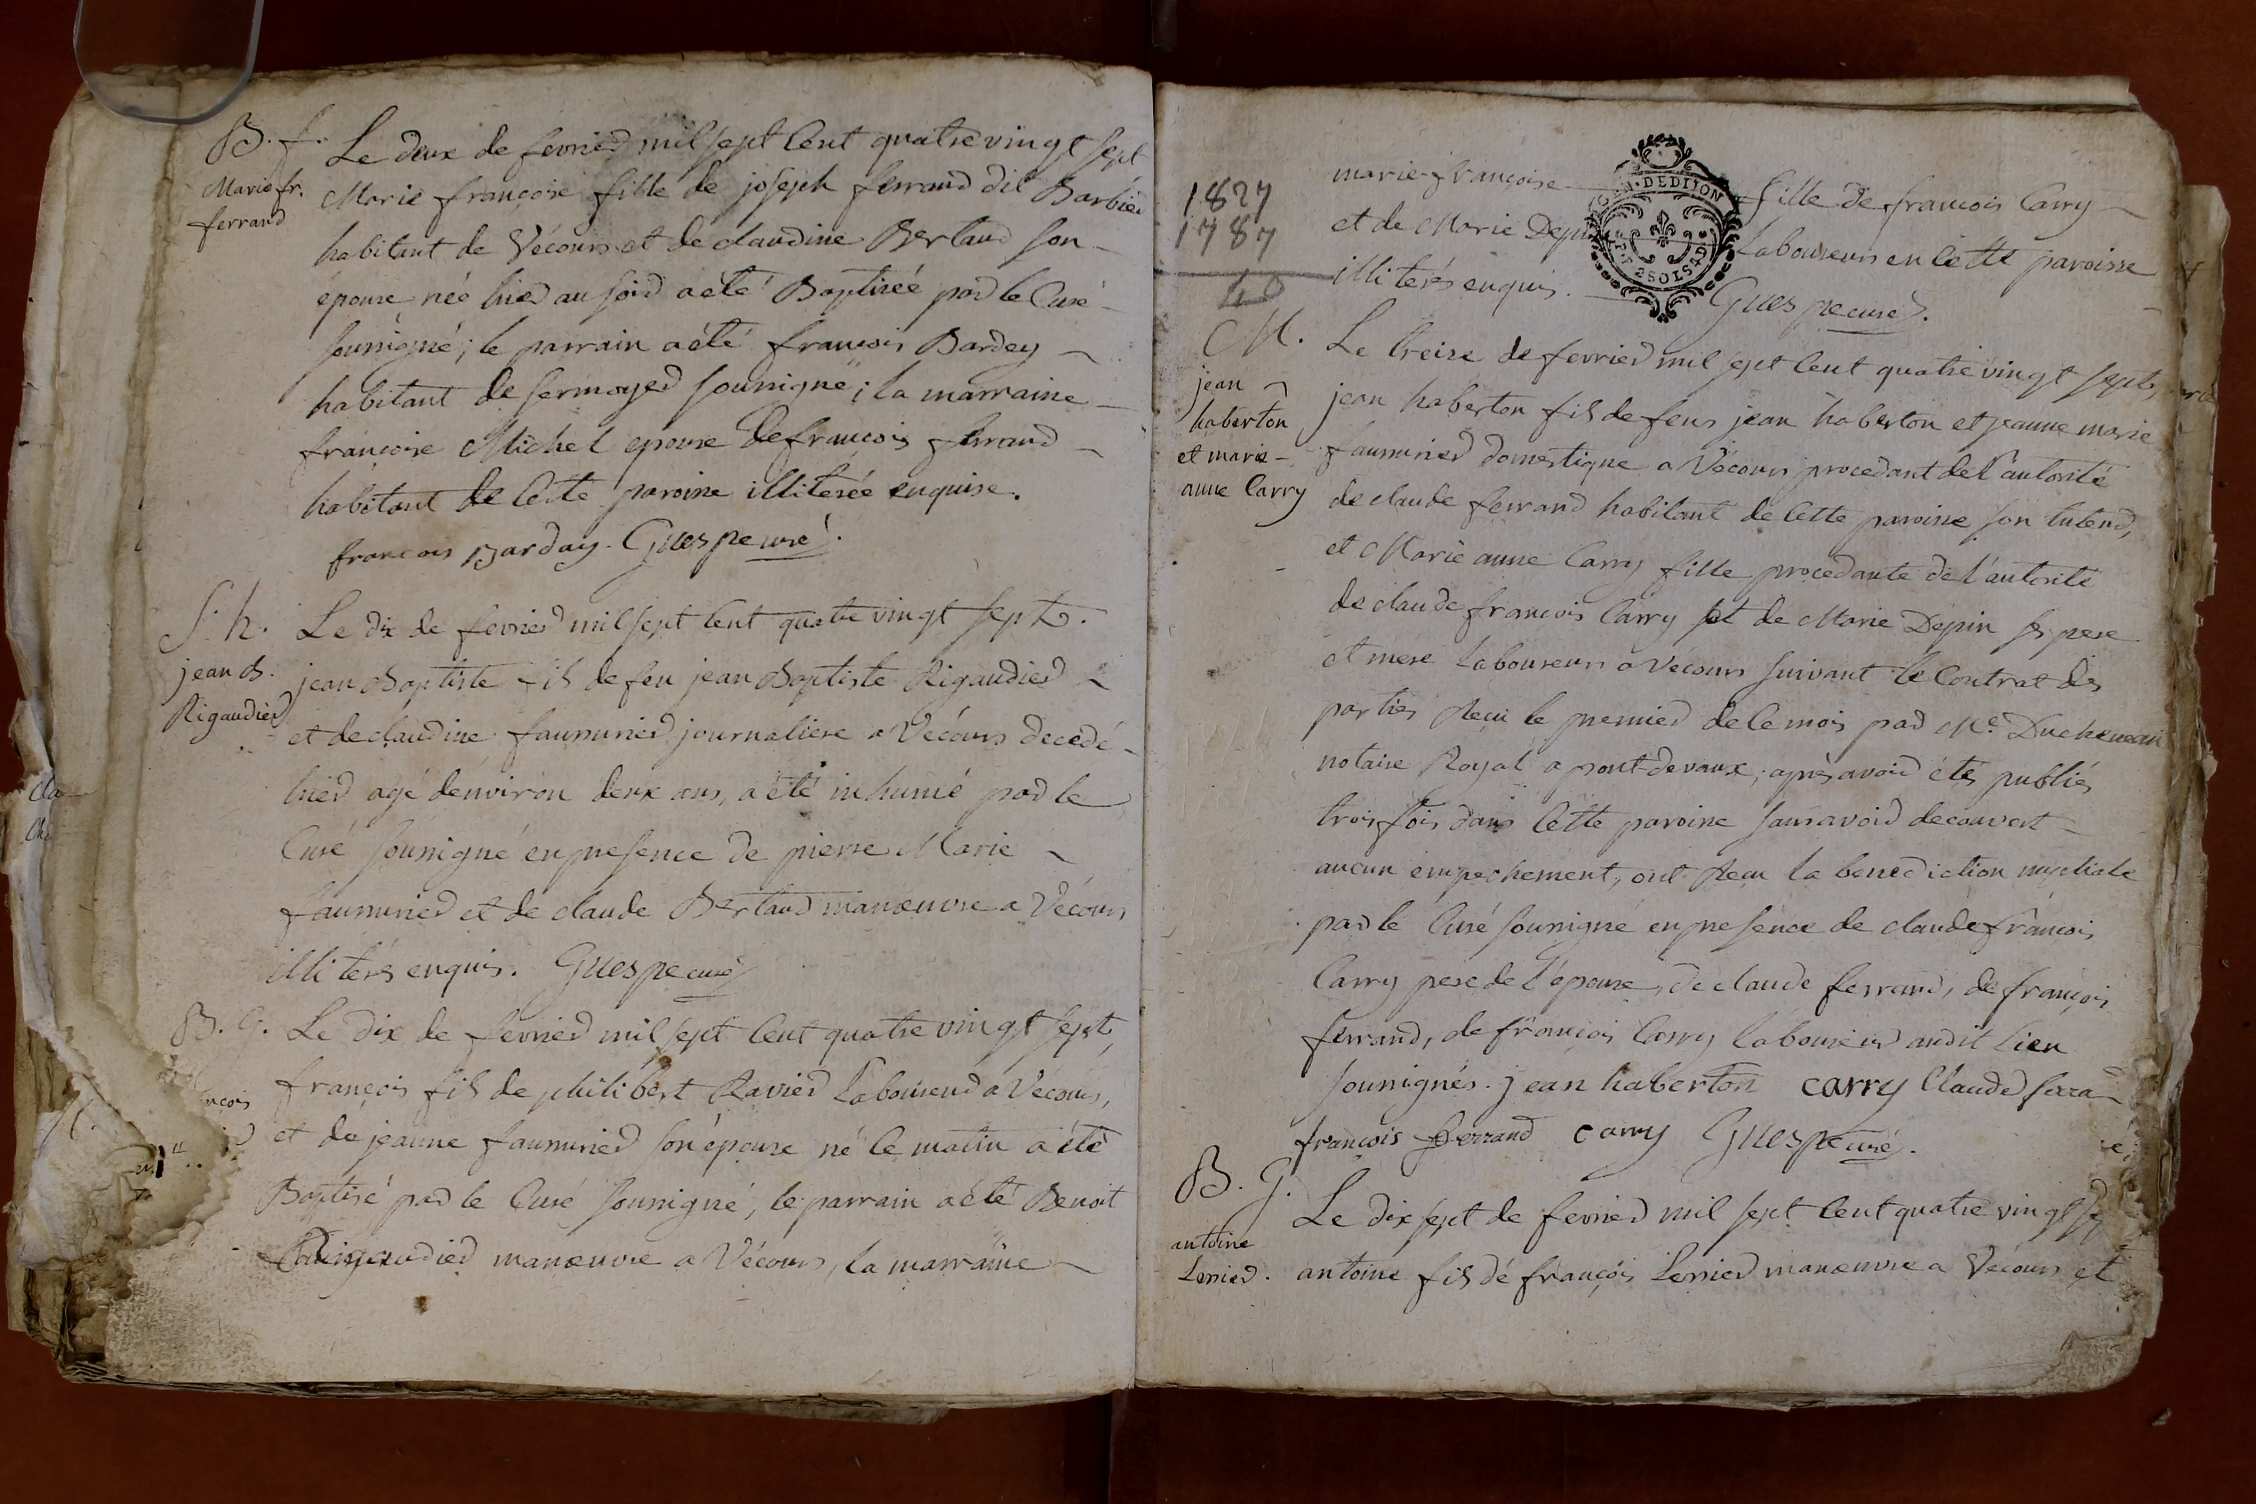 B. f.
Marie fr.
ferrand
Le deux de fevrier mil sept cent quatre vingt sept
Marie françoise fille de joseph ferrand dit Barbier
habitant de Vécours et de claudine Berlaud son
épouse née hier au soir a été Baptisée par le Curé
soussigné; le parrain a été françois Bardey
habitant de sermoyer soussigné; la marraine
françoise Michel epouse de françois ferrand
habitant de cette paroisse illiterée enquise.
francois Barday. Guespe curé.
S. h.
jean B.
Rigaudier
Le dix de fevrier mil sept cent quatre vingt sept.
jean Baptiste fils de feu jean Baptiste Rigaudier
et de claudine faussurier journaliere a Vécours decedé
hier agé d'environ deux ans, a été inhumé par le
Curé soussigné en presence de pierre Marie
faussurier et de claude Berlaud manœuvre a Vécours
illiterés enquis. Guespe curé
B. G.
Le dix de fevrier mil sept cent quatre vingt sept,
françois fils de philibert Ravier Laboureur a Vécours,
et de jeanne faussurier son épouse né le matin a été
Baptisé par le Curé soussigné, le parrain a été Benoit
Rigaudier manœuvre a Vécours, la marraine
1827
1787
40
marie-françoise fille de francois Carry
et de Marie Depin Laboureurs en cette paroisse
illiterés enquis. Guespe curé.
GEN. DE DIJON
M.
jean
haberton
et marie
anne Carry
Le treize de fevrier mil sept cent quatre vingt sept,
jean haberton fils de feus jean haberton et jeanne marie
faussurier domestique a Vécours procedant de l'autorité
de claude ferrand habitant de cette paroisse son tuteur,
et Marie anne Carry fille procedante de l'autorité
de claude françois Carry et de Marie Depin ses pere
et mere Laboureurs a Vécours suivant le Contrat des
parties Recu le premier de ce mois par Me. Ducheneau
notaire Royal a pont-de vaux; après avoir étés publiés
trois fois dans cette paroisse sans avoir decouvert
aucun empechement, ont Recu la benediction nuptiale
par le Curé soussigné en presence de claude françois
Carry pere de l'épouse, de claude ferrand, de françois
ferrand, de françois Carry laboureur audit lieu
soussignés. jean haberton carry Claude ferra
françois ferrand carry Guespe curé.
B. G.
antoine
Lerrier.
Le dix sept de fevrier mil sept cent quatre vingt sep
antoine fils de françois Lerrier manœuvre a Vécours et